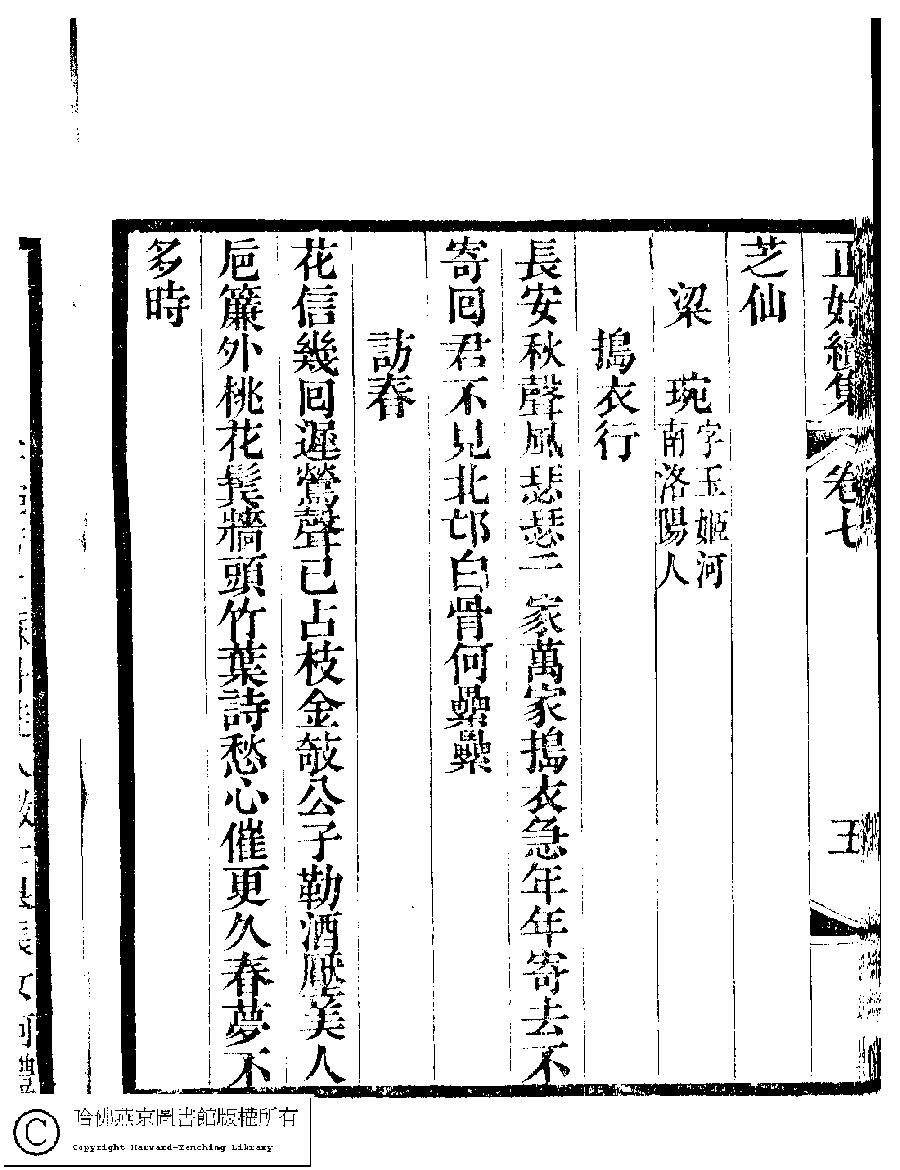 正始續集 卷七 五
芝仙
梁 琬 字玉姬河南洛陽人
搗衣行
長安秋聲風瑟瑟千家萬家搗衣急年年寄去不
寄囘君不見北邙白骨何纍纍
訪春
花信幾囘遲鶯聲已占枝金敲公子勒酒壓美人
巵簾外桃花鬓牆頭竹葉詩愁心催更久春夢不
多時
哈佛燕京圖書館版權所有
Copyright Harvard-Yenching Library